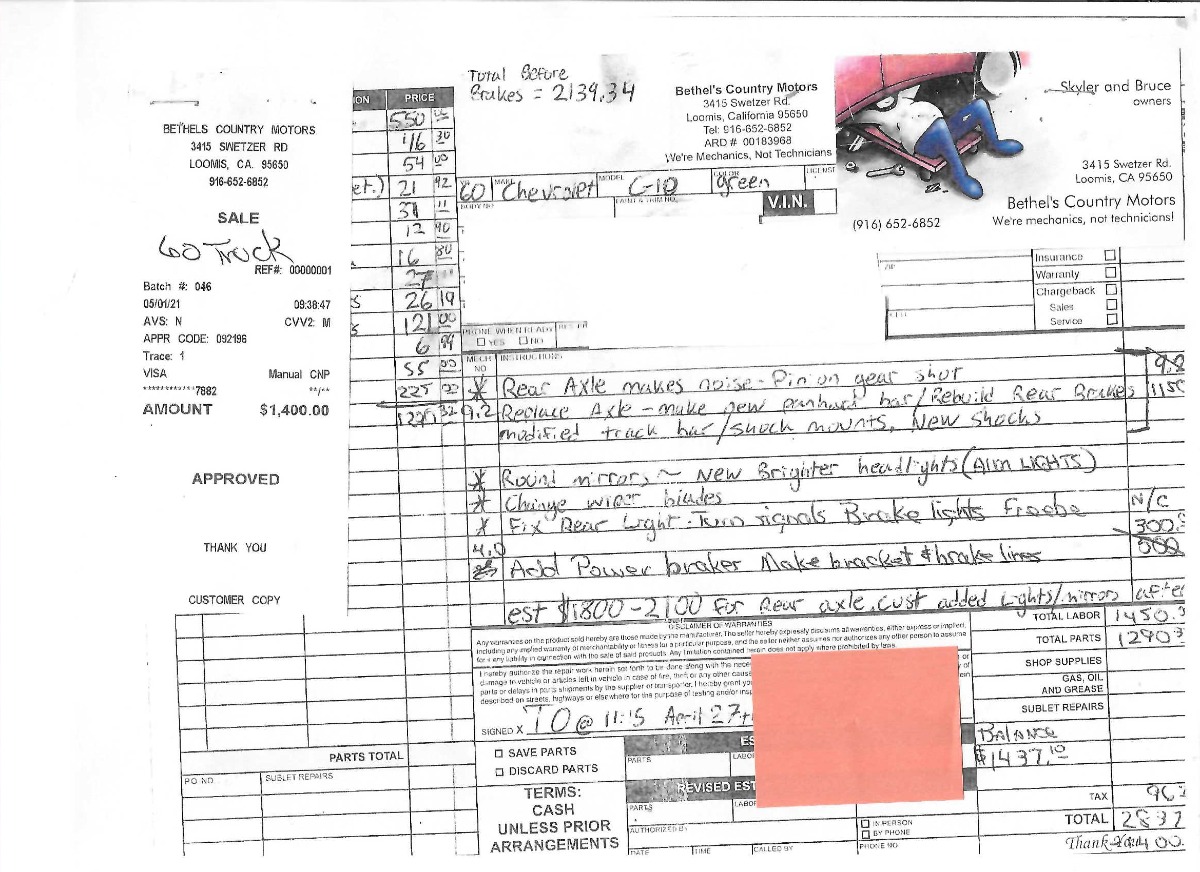 Total Before
Brakes = 2139.34
BETHELS COUNTRY MOTORS
3415 SWETZER RD
LOOMIS, CA. 95650
916-652-6852
SALE
60 Truck
REF#: 00000001
Batch #: 046
05/01/21 09:38:47
AVS: N CVV2: M
APPR CODE: 092196
Trace: 1
VISA Manual CNP
************7882 **/**
AMOUNT $1,400.00
APPROVED
THANK YOU
CUSTOMER COPY
ION PRICE
550
116 30
54 00
et.) 21 92
31 11
12 90
16 80
27
S 26 19
S 121 00
6 99
55 00
225
Bethel's Country Motors
3415 Swetzer Rd.
Loomis, California 95650
Tel: 916-652-6852
ARD # 00183968
We're Mechanics, Not Technicians
Skyler and Bruce
owners
3415 Swetzer Rd.
Loomis, CA 95650
Bethel's Country Motors
(916) 652-6852 We're mechanics, not technicians!
60 Chevrolet MODEL C-10 COLOR green LICENSE
BODY NO. PAINT & TRIM NO. V.I.N.
ZIP
Insurance
Warranty
Chargeback
Sales
Service
PHONE WHEN READY
YES NO
MECH NO INSTRUCTIONS
* Rear Axle makes noise - Pinion gear shot 9.2
9.2 Replace Axle - make new panhard bar/Rebuild Rear Brakes 1150
modified track bar/shock mounts, New shocks
* Round mirrors ~ New Brighter headlights (Aim LIGHTS)
* Change wiper blades
* Fix Rear Light - Turn signals Brake lights Freebe N/C
4.0 300.
Add Power brakes Make bracket & brake lines
est $1800-2100 for Rear axle, cust added lights/mirrors after
DISCLAIMER OF WARRANTIES
Any warranties on the product sold hereby are those made by the manufacturer. The seller hereby expressly disclaims all warranties, either express or implied,
including any implied warranty of merchantability or fitness for a particular purpose, and the seller neither assumes nor authorizes any other person to assume
for it any liability in connection with the sale of said products. Any limitation contained herein does not apply where prohibited by laws.
I hereby authorize the repair work herein set forth to be done along with the nece
damage to vehicle or articles left in vehicle in case of fire, theft or any other cause
parts or delays in parts shipments by the supplier or transporter. I hereby grant you
described on streets, highways or elsewhere for the purpose of testing and/or ins
SIGNED X TO @ 11:15 April 27th
TOTAL LABOR 1450.
TOTAL PARTS 1290
SHOP SUPPLIES
GAS, OIL
AND GREASE
SUBLET REPAIRS
Balance
$1437.10
TAX 96
TOTAL 2837
Thank You 1400.
PARTS TOTAL
PO NO SUBLET REPAIRS
SAVE PARTS
DISCARD PARTS
TERMS:
CASH
UNLESS PRIOR
ARRANGEMENTS
ES
PARTS LABO
REVISED EST
PARTS LABOR
AUTHORIZED BY
IN PERSON
BY PHONE
DATE TIME CALLED BY PHONE NO